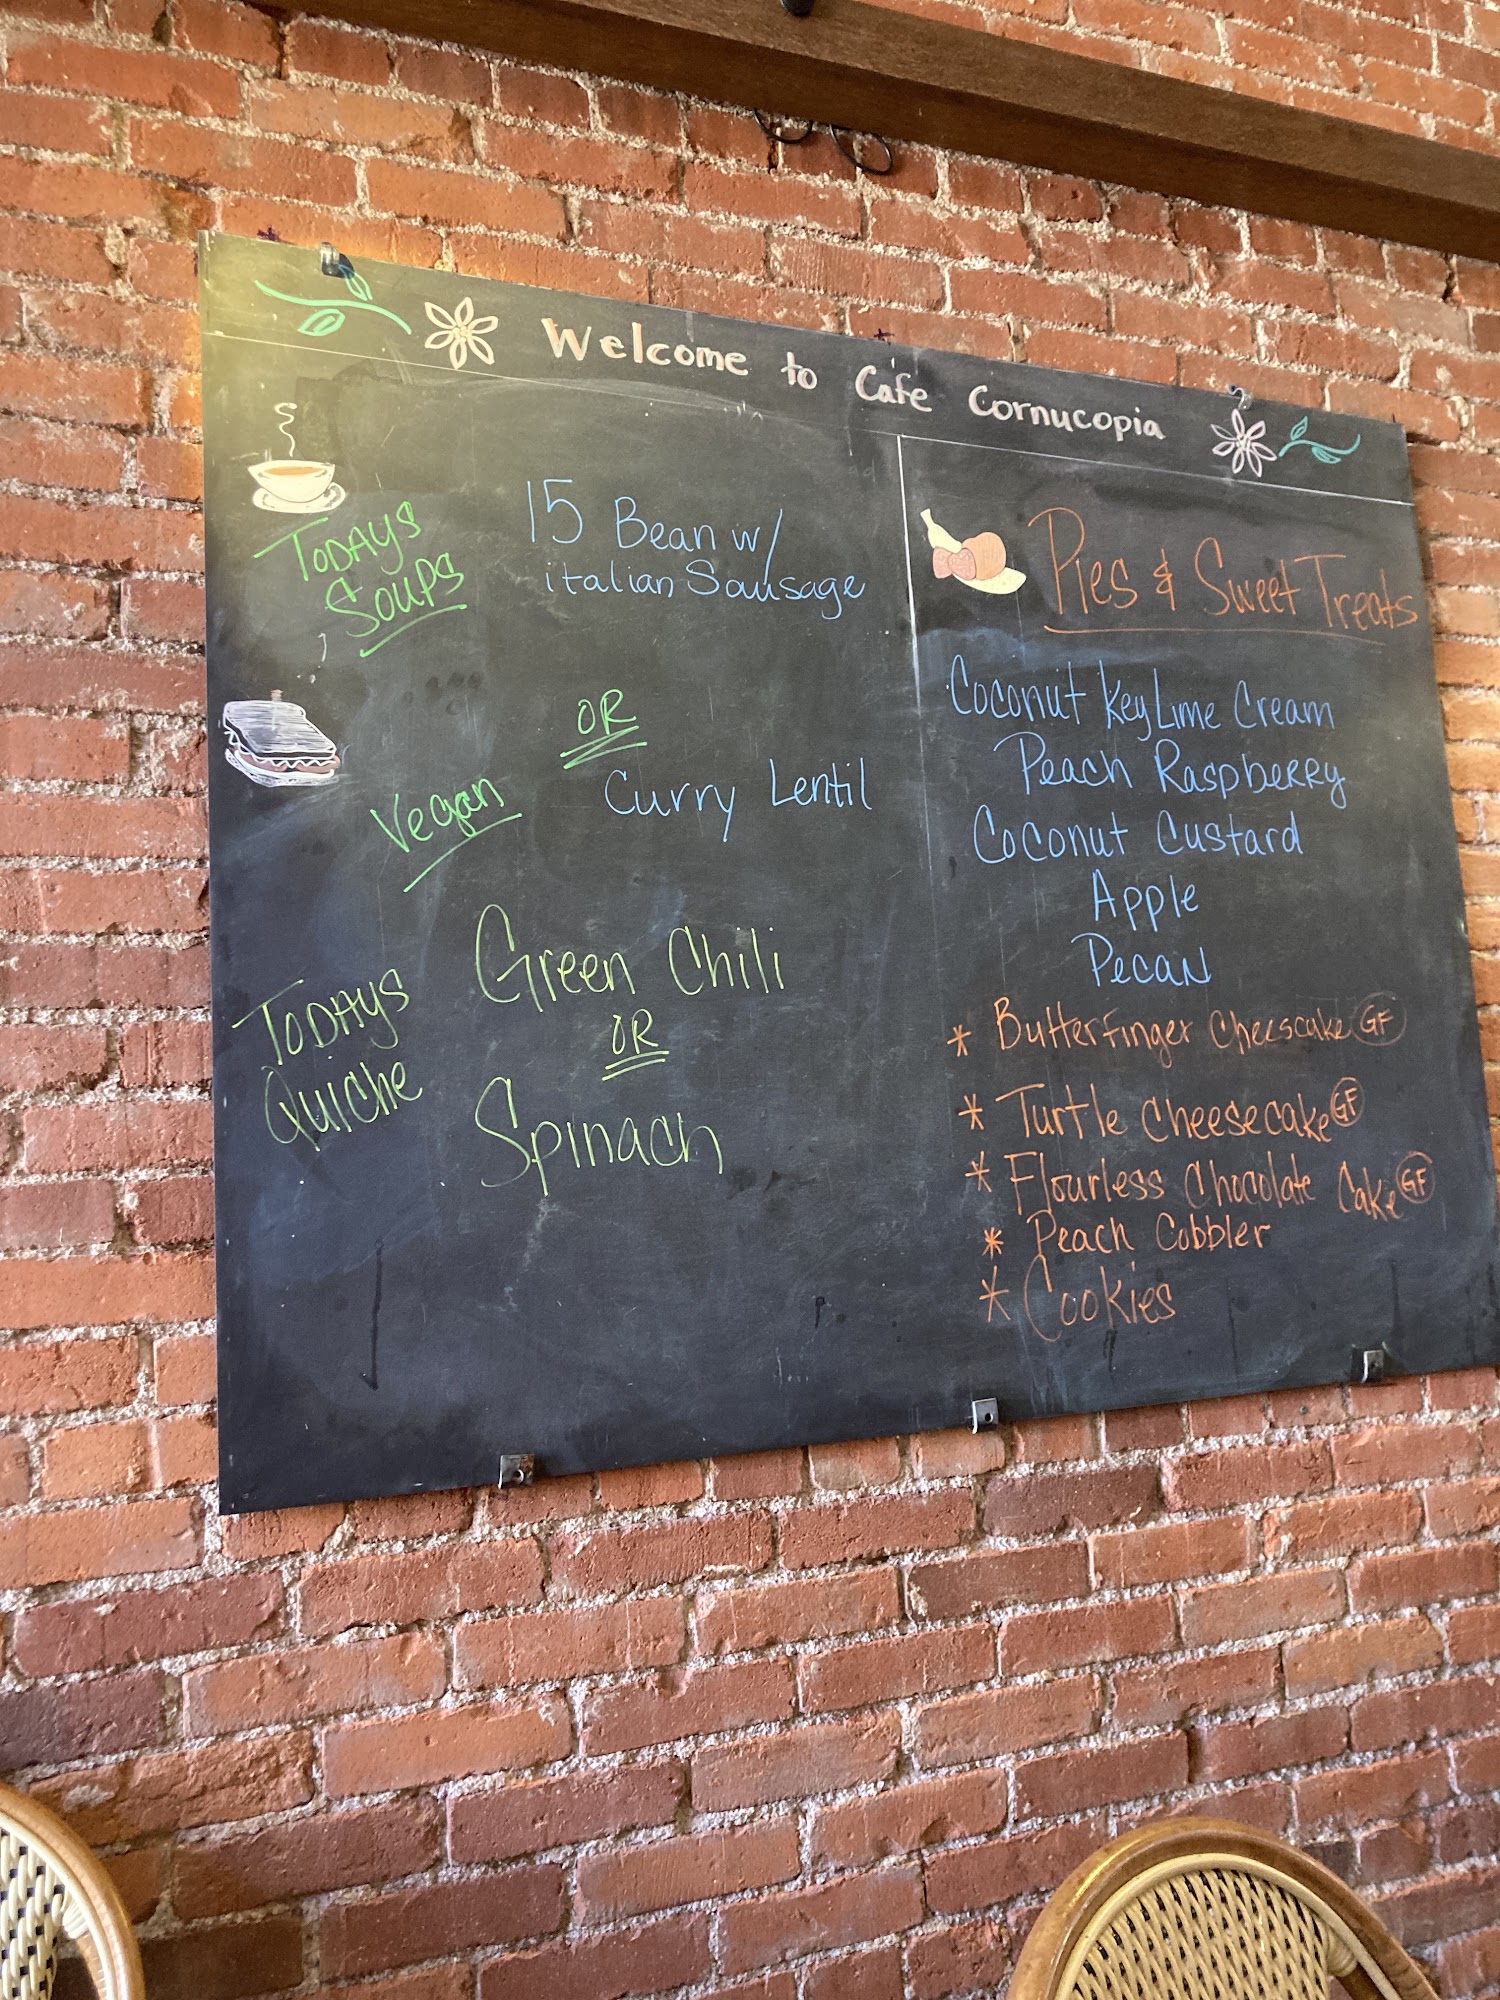 Welcome to Cafe Cornucopia
Todays
Soups
15 Bean w/
italian Sausage
OR
Vegan
Curry Lentil
Todays
Quiche
Green Chili
OR
Spinach
Pies & Sweet Treats
Coconut Key Lime Cream
Peach Raspberry
Coconut Custard
Apple
Pecan
* Butterfinger Cheescake GF
* Turtle Cheesecake GF
* Flourless Chocolate Cake GF
* Peach Cobbler
* Cookies